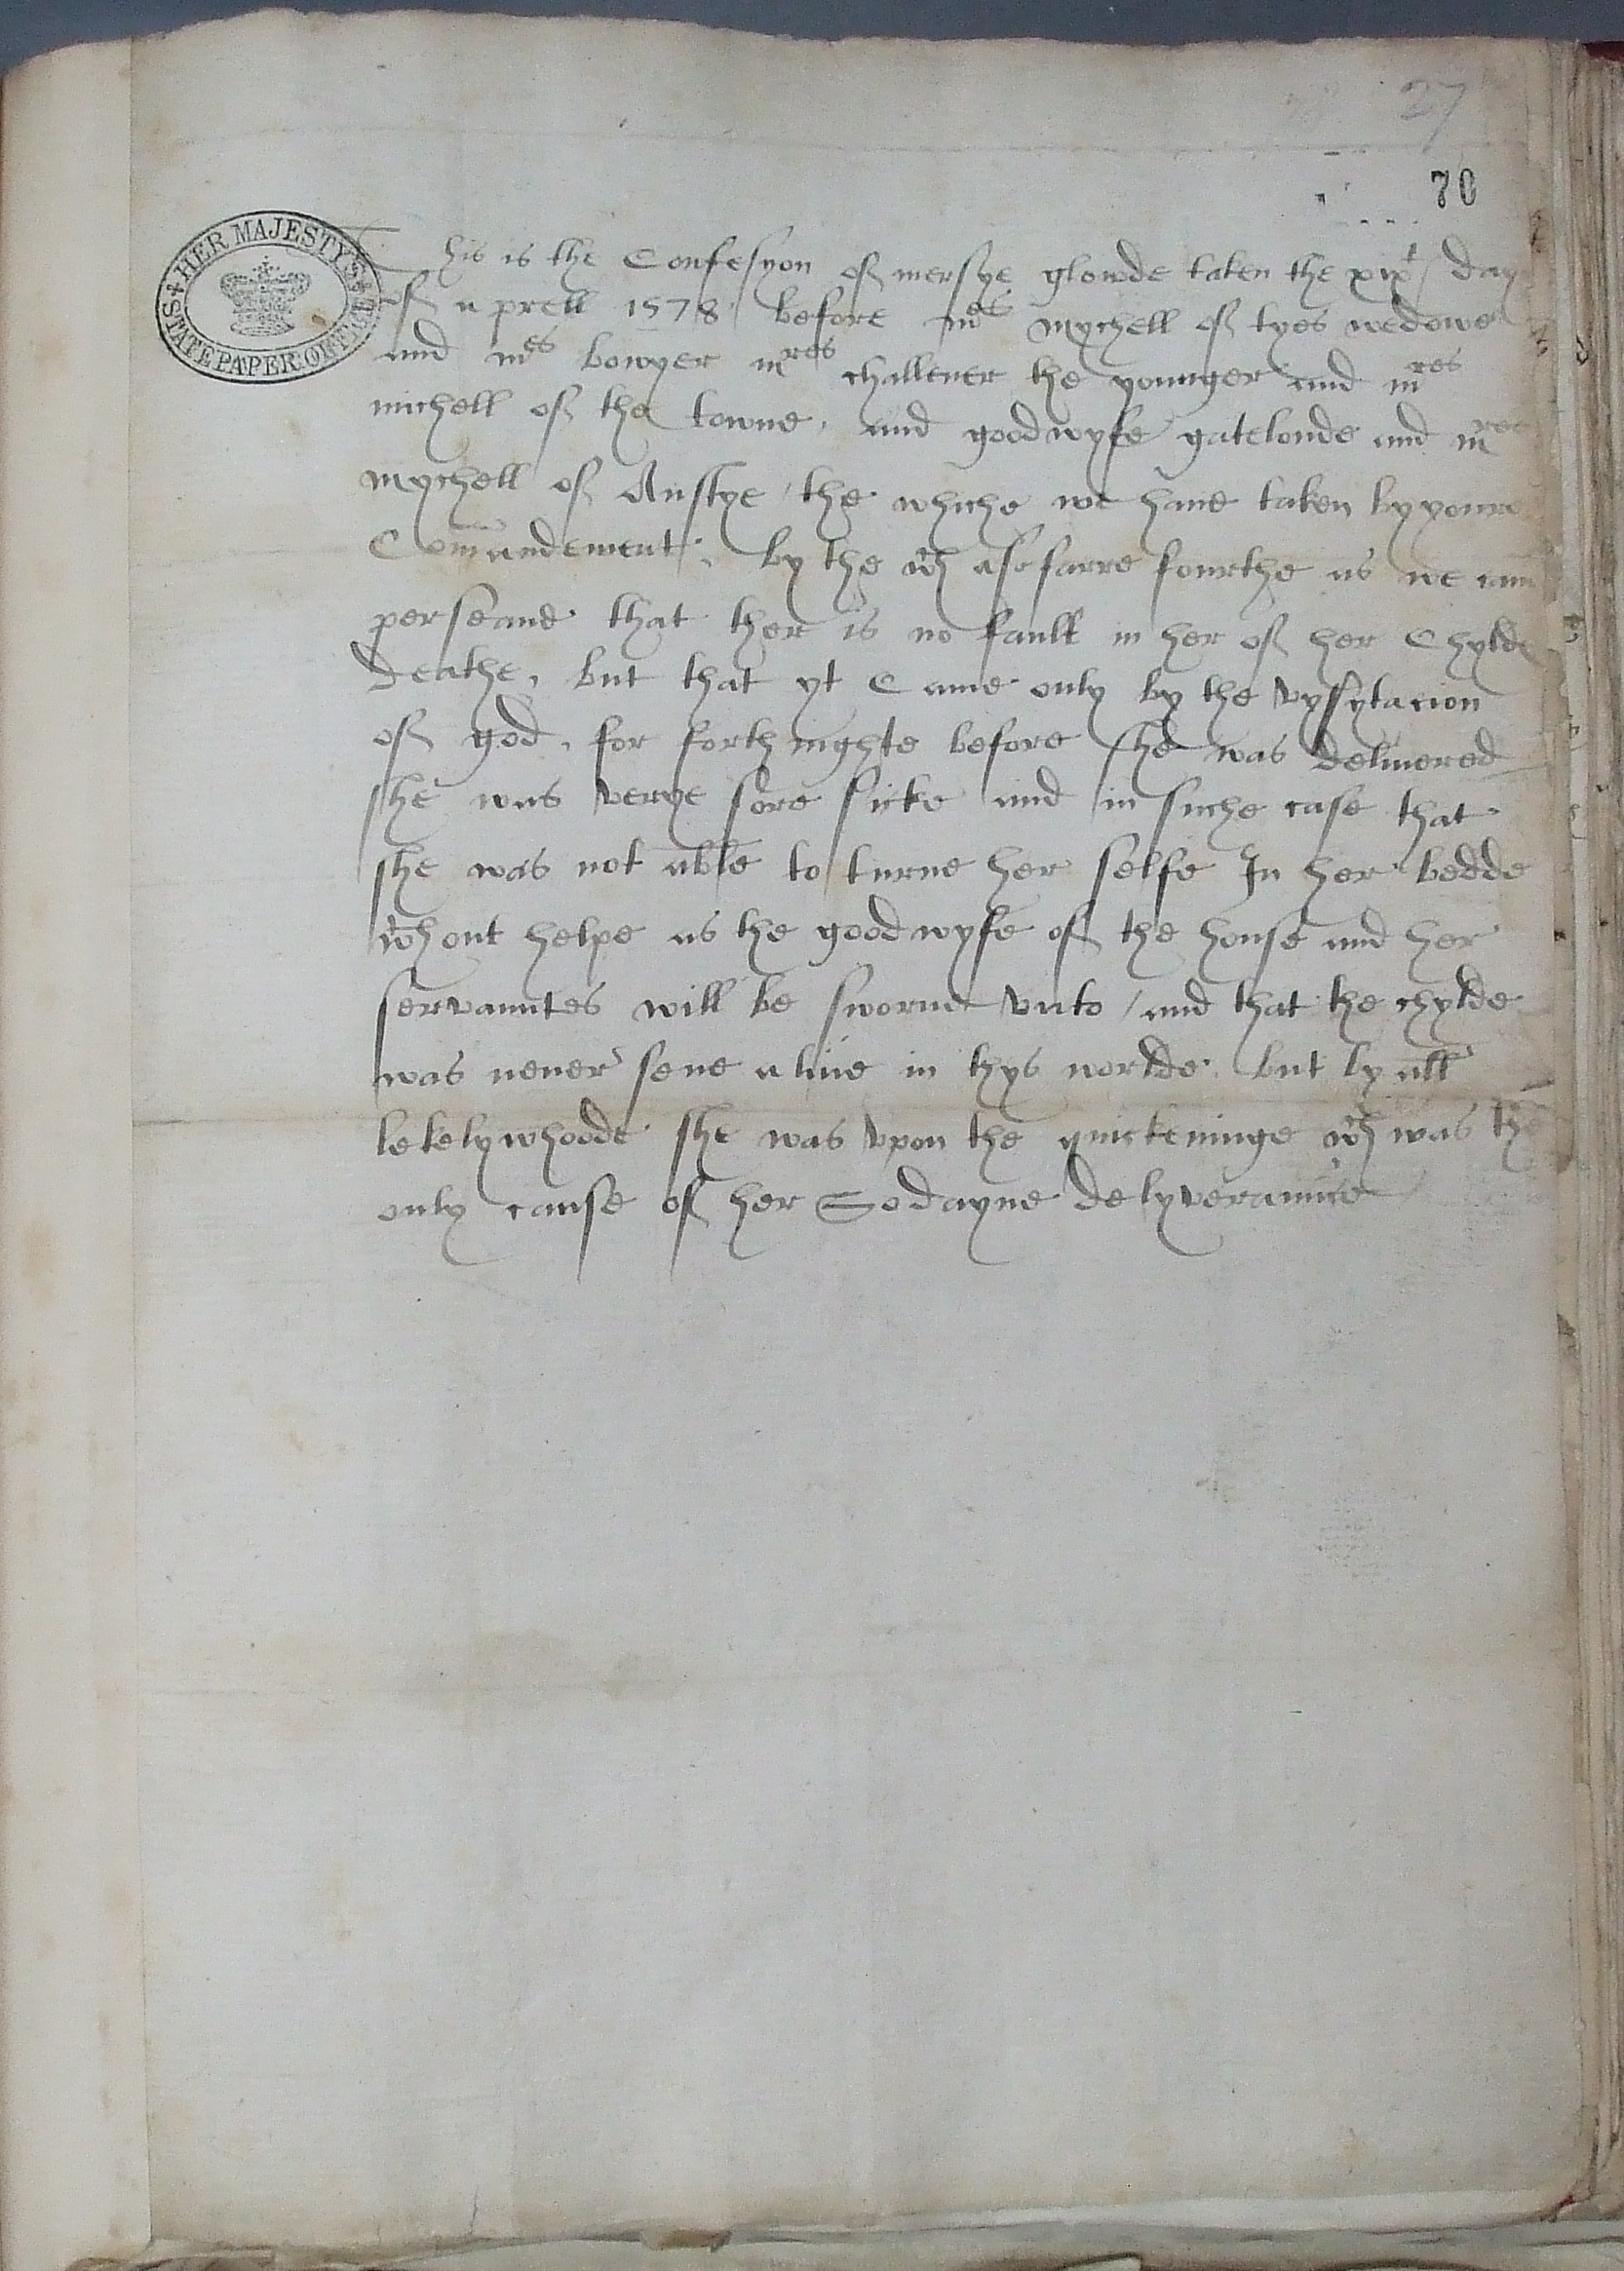 27
70
HER MAJESTY'S STATE PAPER OFFICE
This is the Confesyon of mersye glowde taken the xixt day
of aprell 1578 before mes mychell of tyes wedowe
and mes bowyer mres challener the younger and mres
michell of the towne, and goodwyfe gatelonde and mres
mychell of Anstye / the whiche we haue taken by youre
Comandement. by the wch asefarre fourthe as we can
perseaue that ther is no fault in her of her Chylde
deathe, but that yt Came only by the vysytacion
of god, for forthnighte before she was deliuered
she was verye sore sicke and in suche case that
she was not able to turne her selfe In her bedde
wthout helpe as the goodwyfe of the house and her
servauntes will be sworne vnto / and that the chylde
was neuer sene aliue in thys worlde. but by all
lekelywhoode she was vpon the quickeninge wch was the
only cause of her Sodayne delyveraunce